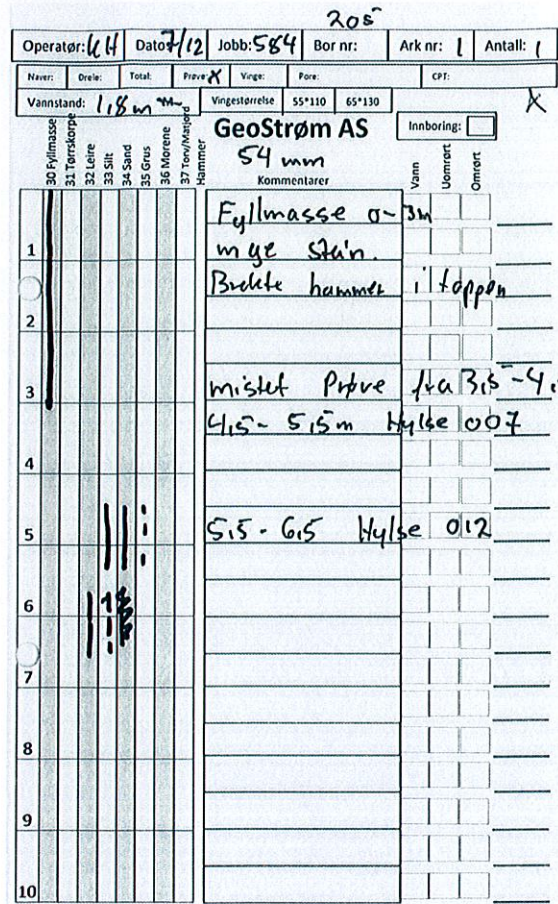 205
Operatør: KH Dato 7/12 Jobb: 584 Bor nr: Ark nr: 1 Antall: 1
Naver: Dreie: Total: Prøve: X Vinge: Pore: CPT:
Vannstand: 1,8 m Vingestørrelse 55*110 65*130 X
GeoStrøm AS Innboring:
54 mm
30 Fyllmasse
31 Tørrskorpe
32 Leire
33 Silt
34 Sand
35 Grus
36 Morene
37 Torv/Matjord
Hammer
Kommentarer Vann Uomrørt Omrørt
Fyllmasse 0-3m
mye stein.
1
Brekte hammer i toppen
2
mistet Prøve fra 3,5-4,
3
4,5-5,5m Hylse 007
4
5,5-6,5 Hylse 012
5
6
7
8
9
10